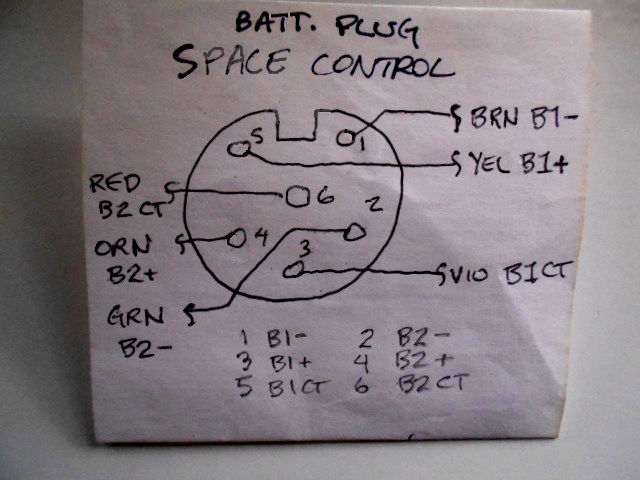 BATT. PLUG
SPACE CONTROL
BRN B1-
5
1
YEL B1+
RED
B2 CT
6
2
ORN
B2+
4
3
VIO B1CT
GRN
B2-
1 B1- 2 B2-
3 B1+ 4 B2+
5 B1CT 6 B2CT